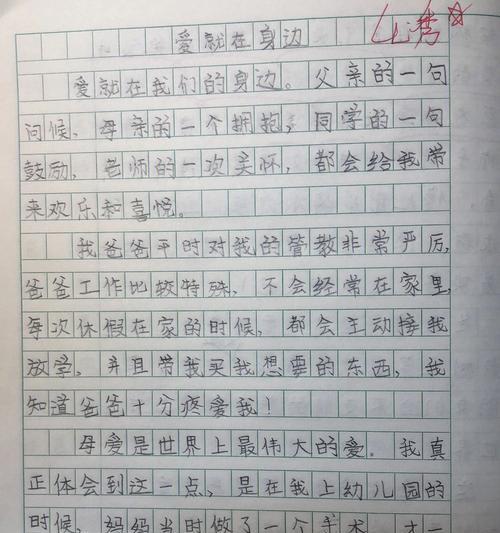 优秀
爱就在身边
爱就在我们的身边。父亲的一句
问候，母亲的一个拥抱，同学的一句
鼓励，老师的一次关怀，都会给我带
来欢乐和喜悦。
我爸爸平时对我的管教非常严厉，
爸爸工作比较特殊，不会经常在家里，
每次休假在家的时候，都会主动接我
放学，并且带我买我想要的东西，我
知道爸爸十分疼爱我！
母爱是世界上最伟大的爱。我真
正体会到这一点，是在我上幼儿园的
时候，妈妈当时做了一个手术，才一